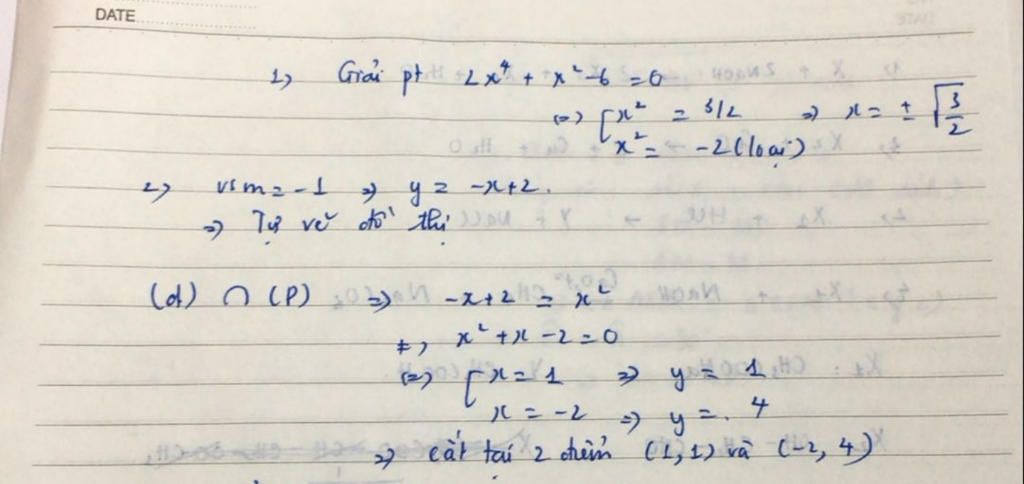 DATE
1) Giải pt 2x⁴ + x² - 6 = 0
(=) [ x² = 3/2 => x = ± √(3/2)
x² = -2 (loại)
2) vs m = -1 => y = -x+2.
=> Tự vẽ đồ thị
(d) ∩ (P) => -x+2 = x²
x² + x - 2 = 0
(=) [ x = 1 => y = 1
x = -2 => y = . 4
=> cắt tại 2 điểm (1,1) và (-2, 4)